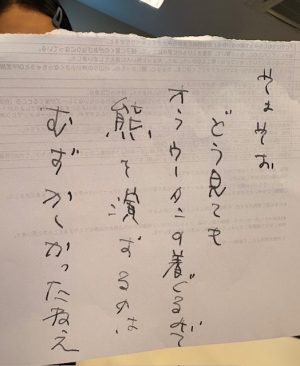 どう見ても
オラウータンの着ぐるみで
熊を演ずるのは
むずかしかったねえ